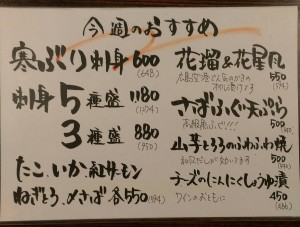 今週のおすすめ
寒ぶり刺身 600
(648)
刺身5種盛 1180
3種盛 880
(950)
たこ、いか、紅サーモン
ねぎとろ、〆さば 各550
(594)
花瑠&花星凡
550
(594)
さばふぐ天ぷら
500
山芋とろろのふわふわ焼
500
チーズのにんにくしょうゆ漬
ワインのおともに 450
(486)